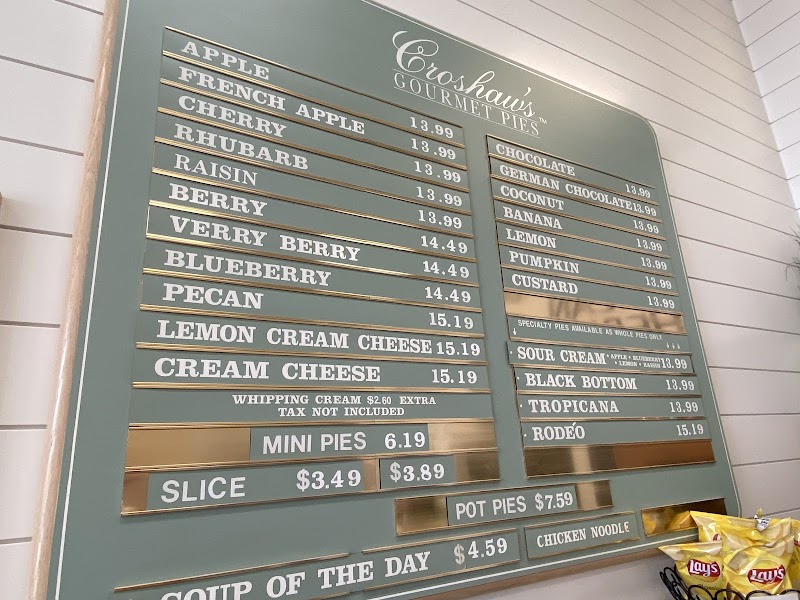 Croshaw's™
GOURMET PIES
APPLE 13.99
FRENCH APPLE 13.99
CHERRY 13.99
RHUBARB 13.99
RAISIN 13.99
BERRY 14.49
VERRY BERRY 14.49
BLUEBERRY 14.49
PECAN 15.19
LEMON CREAM CHEESE 15.19
CREAM CHEESE 15.19
WHIPPING CREAM $2.60 EXTRA
TAX NOT INCLUDED
MINI PIES 6.19
SLICE $3.49 $3.89
CHOCOLATE 13.99
GERMAN CHOCOLATE 13.99
COCONUT 13.99
BANANA 13.99
LEMON 13.99
PUMPKIN 13.99
CUSTARD 13.99
SPECIALTY PIES AVAILABLE AS WHOLE PIES ONLY
↓ ↓ ↓ ↓
· SOUR CREAM • APPLE • BLUEBERRY • LEMON • RAISIN 13.99
· BLACK BOTTOM 13.99
· TROPICANA 13.99
· RODEO 15.19
POT PIES $7.59
SOUP OF THE DAY $4.59
CHICKEN NOODLE
Lay's
Lay's